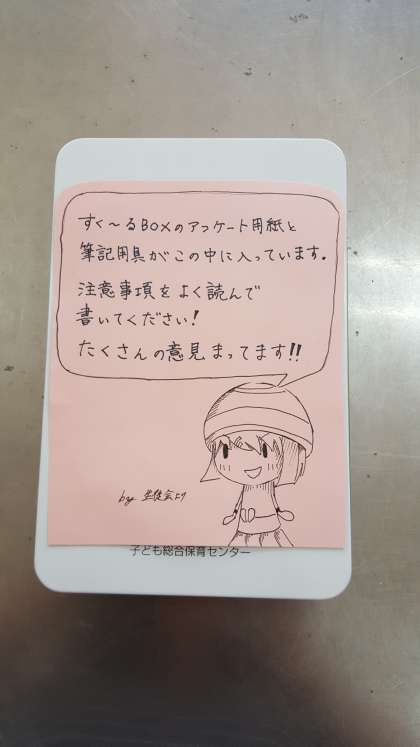 すく～るBOXのアンケート用紙と
筆記用具がこの中に入っています。
注意事項をよく読んで
書いてください!
たくさんの意見まってます!!
by 生徒会より
子ども総合保育センター